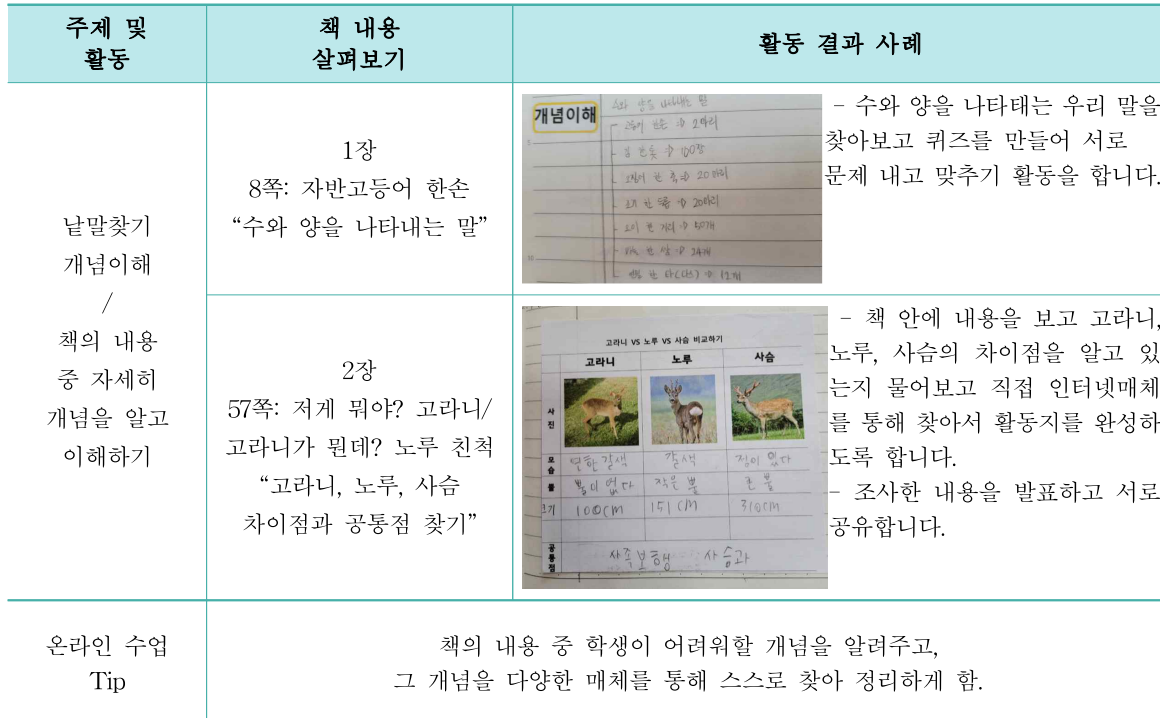 주제 및
활동
책 내용
살펴보기
활동 결과 사례
낱말찾기
개념이해
/
책의 내용
중 자세히
개념을 알고
이해하기
1장
8쪽: 자반고등어 한손
“수와 양을 나타내는 말”
개념이해
수와 양을 나타내는 말
고등어 한손 → 2마리
한 톳 → 100장
오징어 한 축 → 20마리
조기 한 두름 → 20마리
오이 한 거리 → 50개
바늘 한 쌈 → 24개
연필 한 타(다스) → 12개
- 수와 양을 나타태는 우리 말을
찾아보고 퀴즈를 만들어 서로
문제 내고 맞추기 활동을 합니다.
2장
57쪽: 저게 뭐야? 고라니/
고라니가 뭔데? 노루 친척
“고라니, 노루, 사슴
차이점과 공통점 찾기”
고라니 VS 노루 VS 사슴 비교하기
고라니 노루 사슴
사진
모습 연한 갈색 갈색 점이 있다
뿔 뿔이 없다 작은 뿔 큰 뿔
크기 100CM 151CM 310CM
공통점 사족보행 사슴과
- 책 안에 내용을 보고 고라니,
노루, 사슴의 차이점을 알고 있
는지 물어보고 직접 인터넷매체
를 통해 찾아서 활동지를 완성하
도록 합니다.
- 조사한 내용을 발표하고 서로
공유합니다.
온라인 수업
Tip
책의 내용 중 학생이 어려워할 개념을 알려주고,
그 개념을 다양한 매체를 통해 스스로 찾아 정리하게 함.